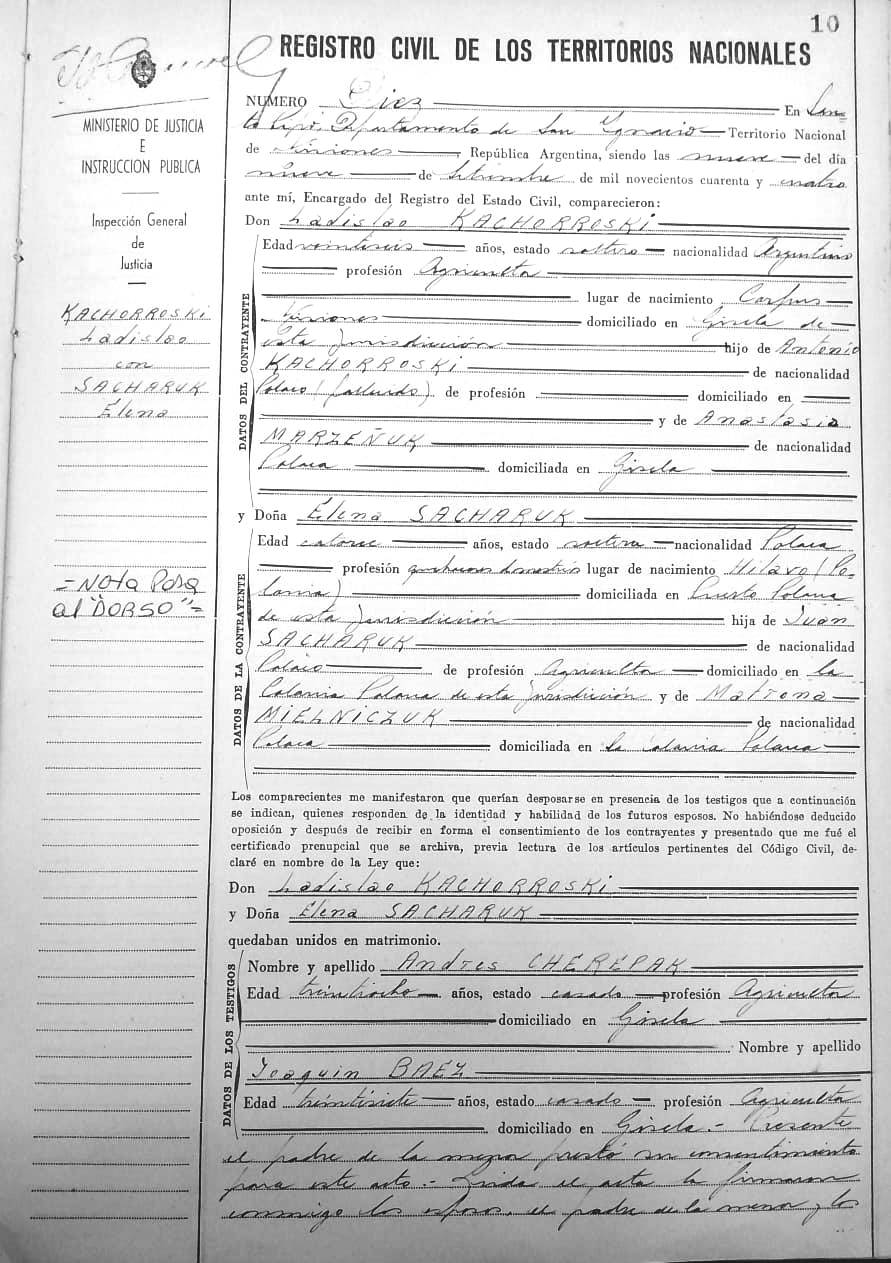 10
REGISTRO CIVIL DE LOS TERRITORIOS NACIONALES
MINISTERIO DE JUSTICIA
E
INSTRUCCION PUBLICA
Inspección General
de
Justicia
KACHORROSKI
Ladislao
con
SACHARUK
Elena
=NOta Pasa
al "DORSO"=
NUMERO Diez En San-
to Pipó, Departamento de San Ygnacio Territorio Nacional
de Misiones, República Argentina, siendo las nueve del día
nueve de Setiembre de mil novecientos cuarenta y cuatro
ante mí, Encargado del Registro del Estado Civil, comparecieron:
Don Ladislao KACHORROSKI
DATOS DEL CONTRAYENTE
Edad veintiseis años, estado soltero nacionalidad Argentino
profesión Agricultor
lugar de nacimiento Corpus
Misiones domiciliado en Gisela de
esta Jurisdicción hijo de Antonio
KACHORROSKI de nacionalidad
Polaco (fallecido) de profesión domiciliado en
y de Anastasia
MARZEÑUK de nacionalidad
Polaca domiciliada en Gisela
y Doña Elena SACHARUK
DATOS DE LA CONTRAYENTE
Edad catorce años, estado soltera nacionalidad Polaca
profesión quehaceres domesticos lugar de nacimiento Hilavo (Po-
lonia) domiciliada en Puesto Polana
de esta Jurisdicción hija de Juan
SACHARUK de nacionalidad
Polaco de profesión Agricultor domiciliado en la
Colonia Polana de esta Jurisdicción y de Matrona
MIELNICZUK de nacionalidad
Polaca domiciliada en la Colonia Polana
Los comparecientes me manifestaron que querían desposarse en presencia de los testigos que a continuación
se indican, quienes responden de la identidad y habilidad de los futuros esposos. No habiéndose deducido
oposición y después de recibir en forma el consentimiento de los contrayentes y presentado que me fué el
certificado prenupcial que se archiva, previa lectura de los artículos pertinentes del Código Civil, de-
claré en nombre de la Ley que:
Don Ladislao KACHORROSKI
y Doña Elena SACHARUK
quedaban unidos en matrimonio.
DATOS DE LOS TESTIGOS
Nombre y apellido Andres CHEREPAK
Edad treintiocho años, estado casado profesión Agricultor
domiciliado en Gisela
Nombre y apellido
Joaquin BAEZ
Edad treintisiete años, estado casado profesión Agricultor
domiciliado en Gisela.- Presente
el padre de la menor prestó su consentimiento
para este acto.- Leida el acta la firmaron
conmigo los esposos, el padre de la menor y los